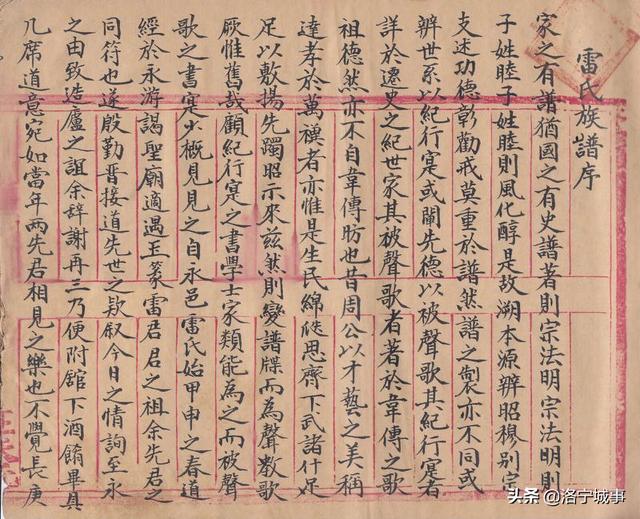 雷氏族譜序
家之有譜猶國之有史譜著則宗法明宗法明則
子姓睦子姓睦則風化醇是故溯本源辨昭穆別宗
支述功德彰勸戒莫重於譜然譜之製亦不同或
辨世系以紀行寔或闡先德以被聲歌其紀行寔者
詳於遷史之紀世家其被聲歌者著於韋傳之歌
祖德然亦不自韋傳昉也昔周公以才藝之美稱
達孝於萬禩者亦惟是生民綿瓞思齊下武諸什足
足以敷揚先躅昭示來兹然則變譜牒而為聲教歌
厥惟舊哉顧紀行寔之書學士家類能為之而被聲
歌之書寔少概見見之自永邑雷氏始甲申之春道
經於永游謁聖廟適遇玉篆雷君君之祖余先君之
同符也遂殷勤晋接道先世之欵叙今日之情詢至永
之由致造廬之詛余辞謝再三乃便附舘下酒餚畢具
几席道意宛如當年兩先君相見之樂也不覺長庚
头条 @洛宁城事